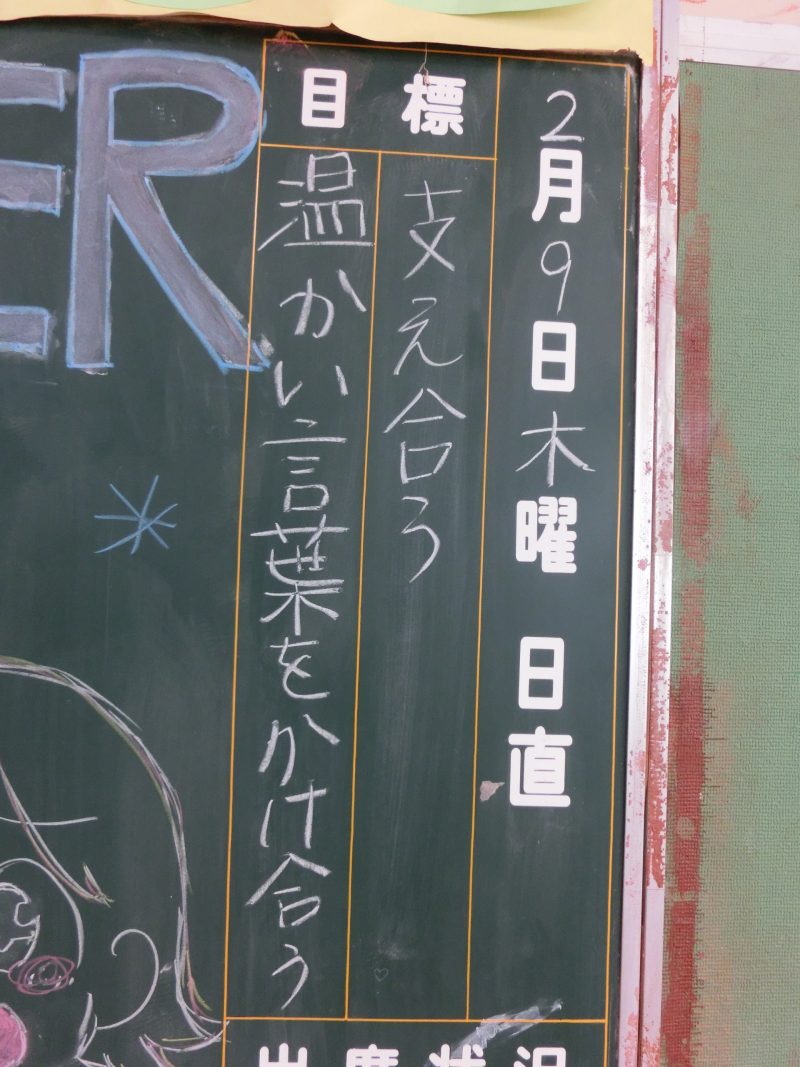 2月9日木曜 日直
目標
支え合う
温かい言葉をかけ合う
出席状況
ER